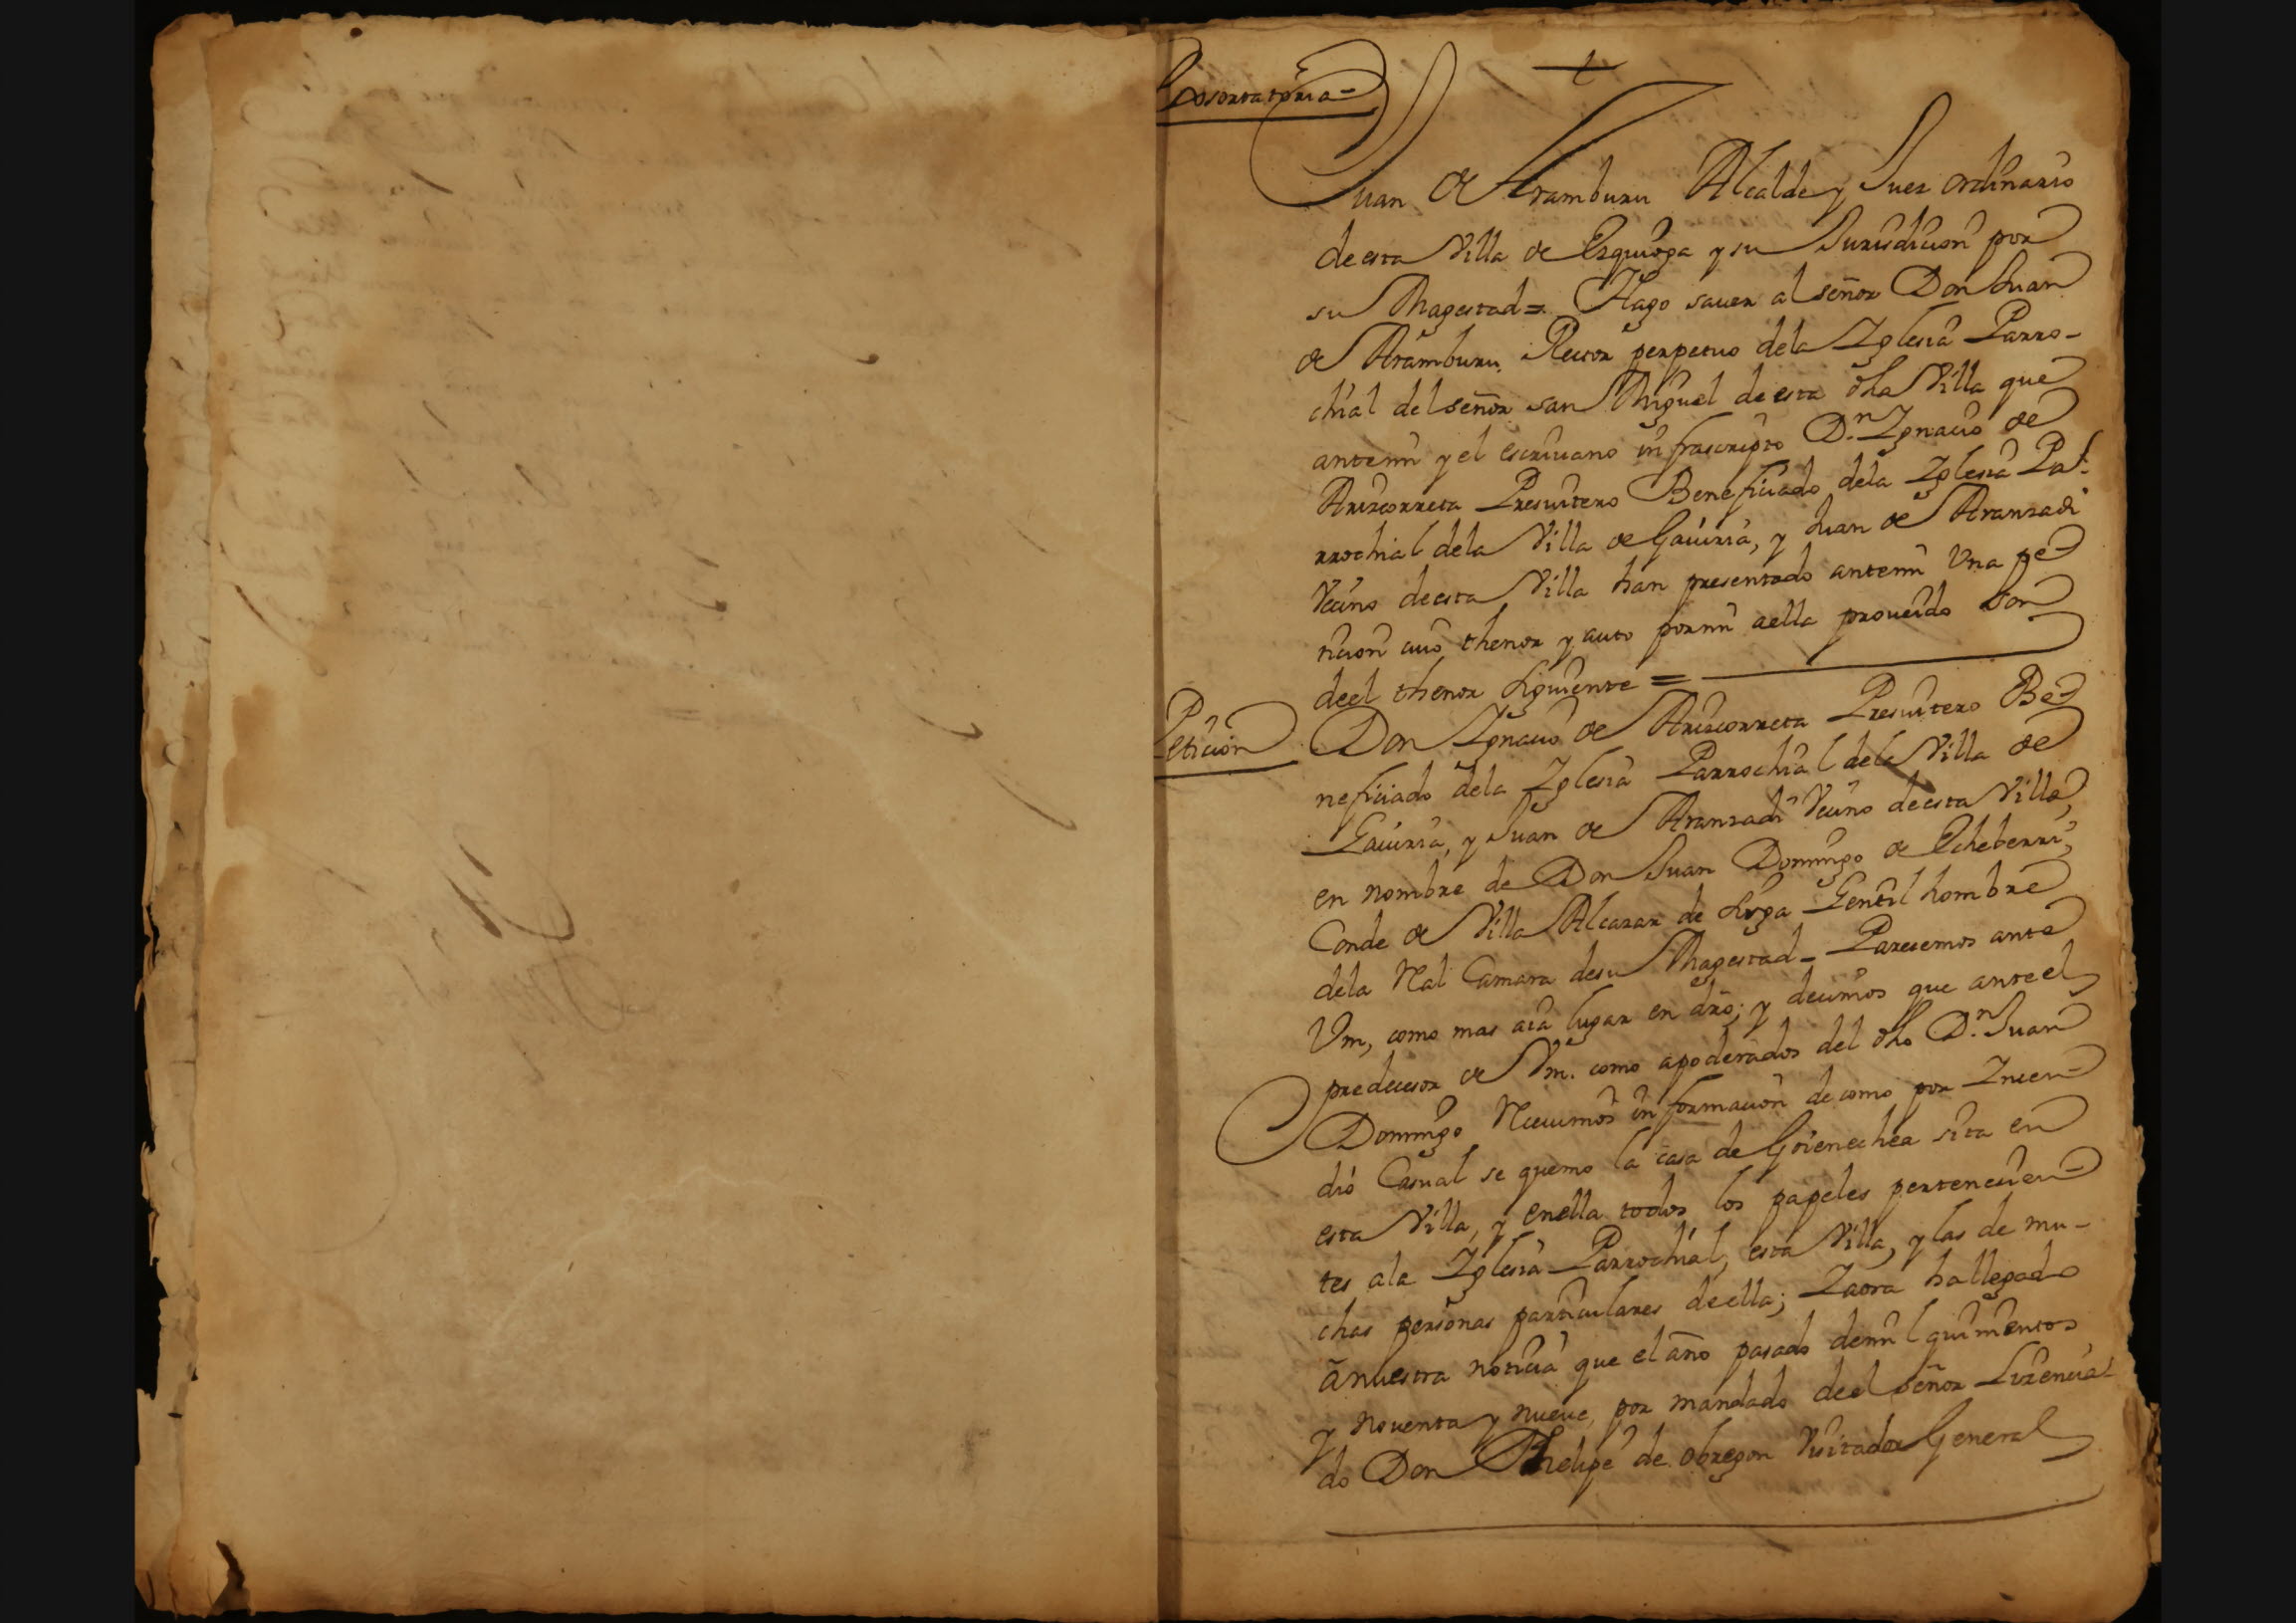 Exortatoria=
Juan de Aramburu Alcalde y Juez ordinario
de esta Villa de Ezquioga y su Jurisdicion por
su Magestad=. Hago sauer al señor Don Juan
de Aramburu, Rector perpetuo dela Yglesia Parro-
chial del señor san Miguel de esta dha Villa que
antemi y el escriuano infrascripto D.n Ygnacio de
Arizcorreta Presuitero Beneficiado dela Yglesia Pa-
rrochial dela Villa de Gauiria, y Juan de Aranzadi
Vecino deesta Villa han presentado antemi Vna pe-
ticion cuio thenor y auto pormi aella proueido son
deel thenor siguiente =
Peticion
Don Ygnacio de Arizcorreta Presuitero Be-
neficiado dela Yglesia Parrochial dela Villa de
Gauiria, y Juan de Aranzadi Vecino deesta Villa,
en nombre de Don Juan Domingo de Echeberri,
Conde de Villa Alcazar de Sirga Gentil hombre
dela Real Camara desu Magestad - Paresemos ante
Vm, como mas aia lugar en dro; y decimos que anteel
predecesor de Vm. como apoderados del dho D.n Juan
Domingo Reciuimos informacion de como por Yncen-
dio Casual se quemo la casa de Goienechea sita en
esta Villa, y enella todos los papeles pertenecien-
tes ala Yglesia Parrochial, esta Villa, y las de mu-
chas personas particulares deella; Yaora hallegado
ãnuestra noticia que el año pasado demil quinientos
y nouenta y nueve, por mandado deel señor Lizencia-
do Don Phelipe de obregon Visitador General